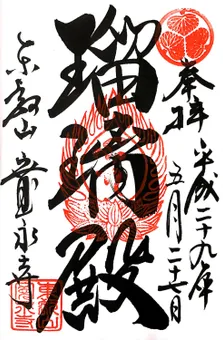 奉拝 平成二十九年
五月二十七日
瑠璃殿
東叡山 寛永寺